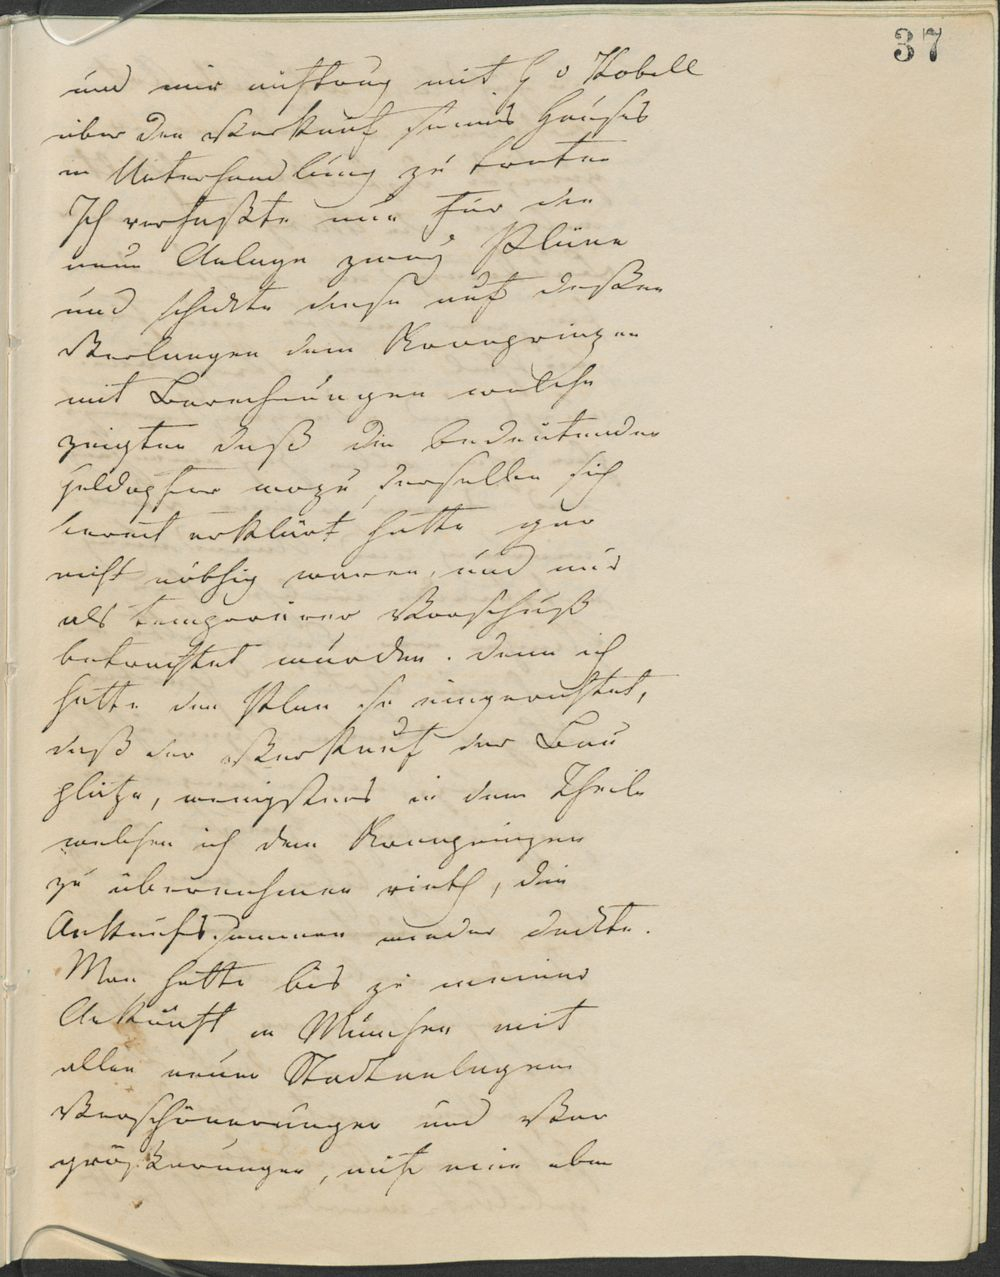 37
und mir auftrug mit H v Kobell
über den Verkauf seines Hauses
in Unterhandlung zu treten
Ich verfaßte nun für die
neue Anlage zwey Pläne
und schickte diese auf dessen
Verlangen dem Kronprinzen
mit Berechnungen welche
zeigten daß die bedeutenden
Geldopfer wozu derselbe sich
bereit erklärt hatte gar
nicht nöthig waren, und nur
als temporärer Vorschuß
betrachtet wurden. denn ich
hatte den Plan so eingerichtet,
daß der Verkauf der Bau
plätze, wenigstens in dem Theile
welchen ich dem Kronprinzen
zu übernehmen rieth, die
Ankaufssummen wieder deckte.
Man hatte bis zu meiner
Ankunft in München mit
allen neuen Stadtanlagen
Verschönerungen und Ver
größerungen, nicht eine eben